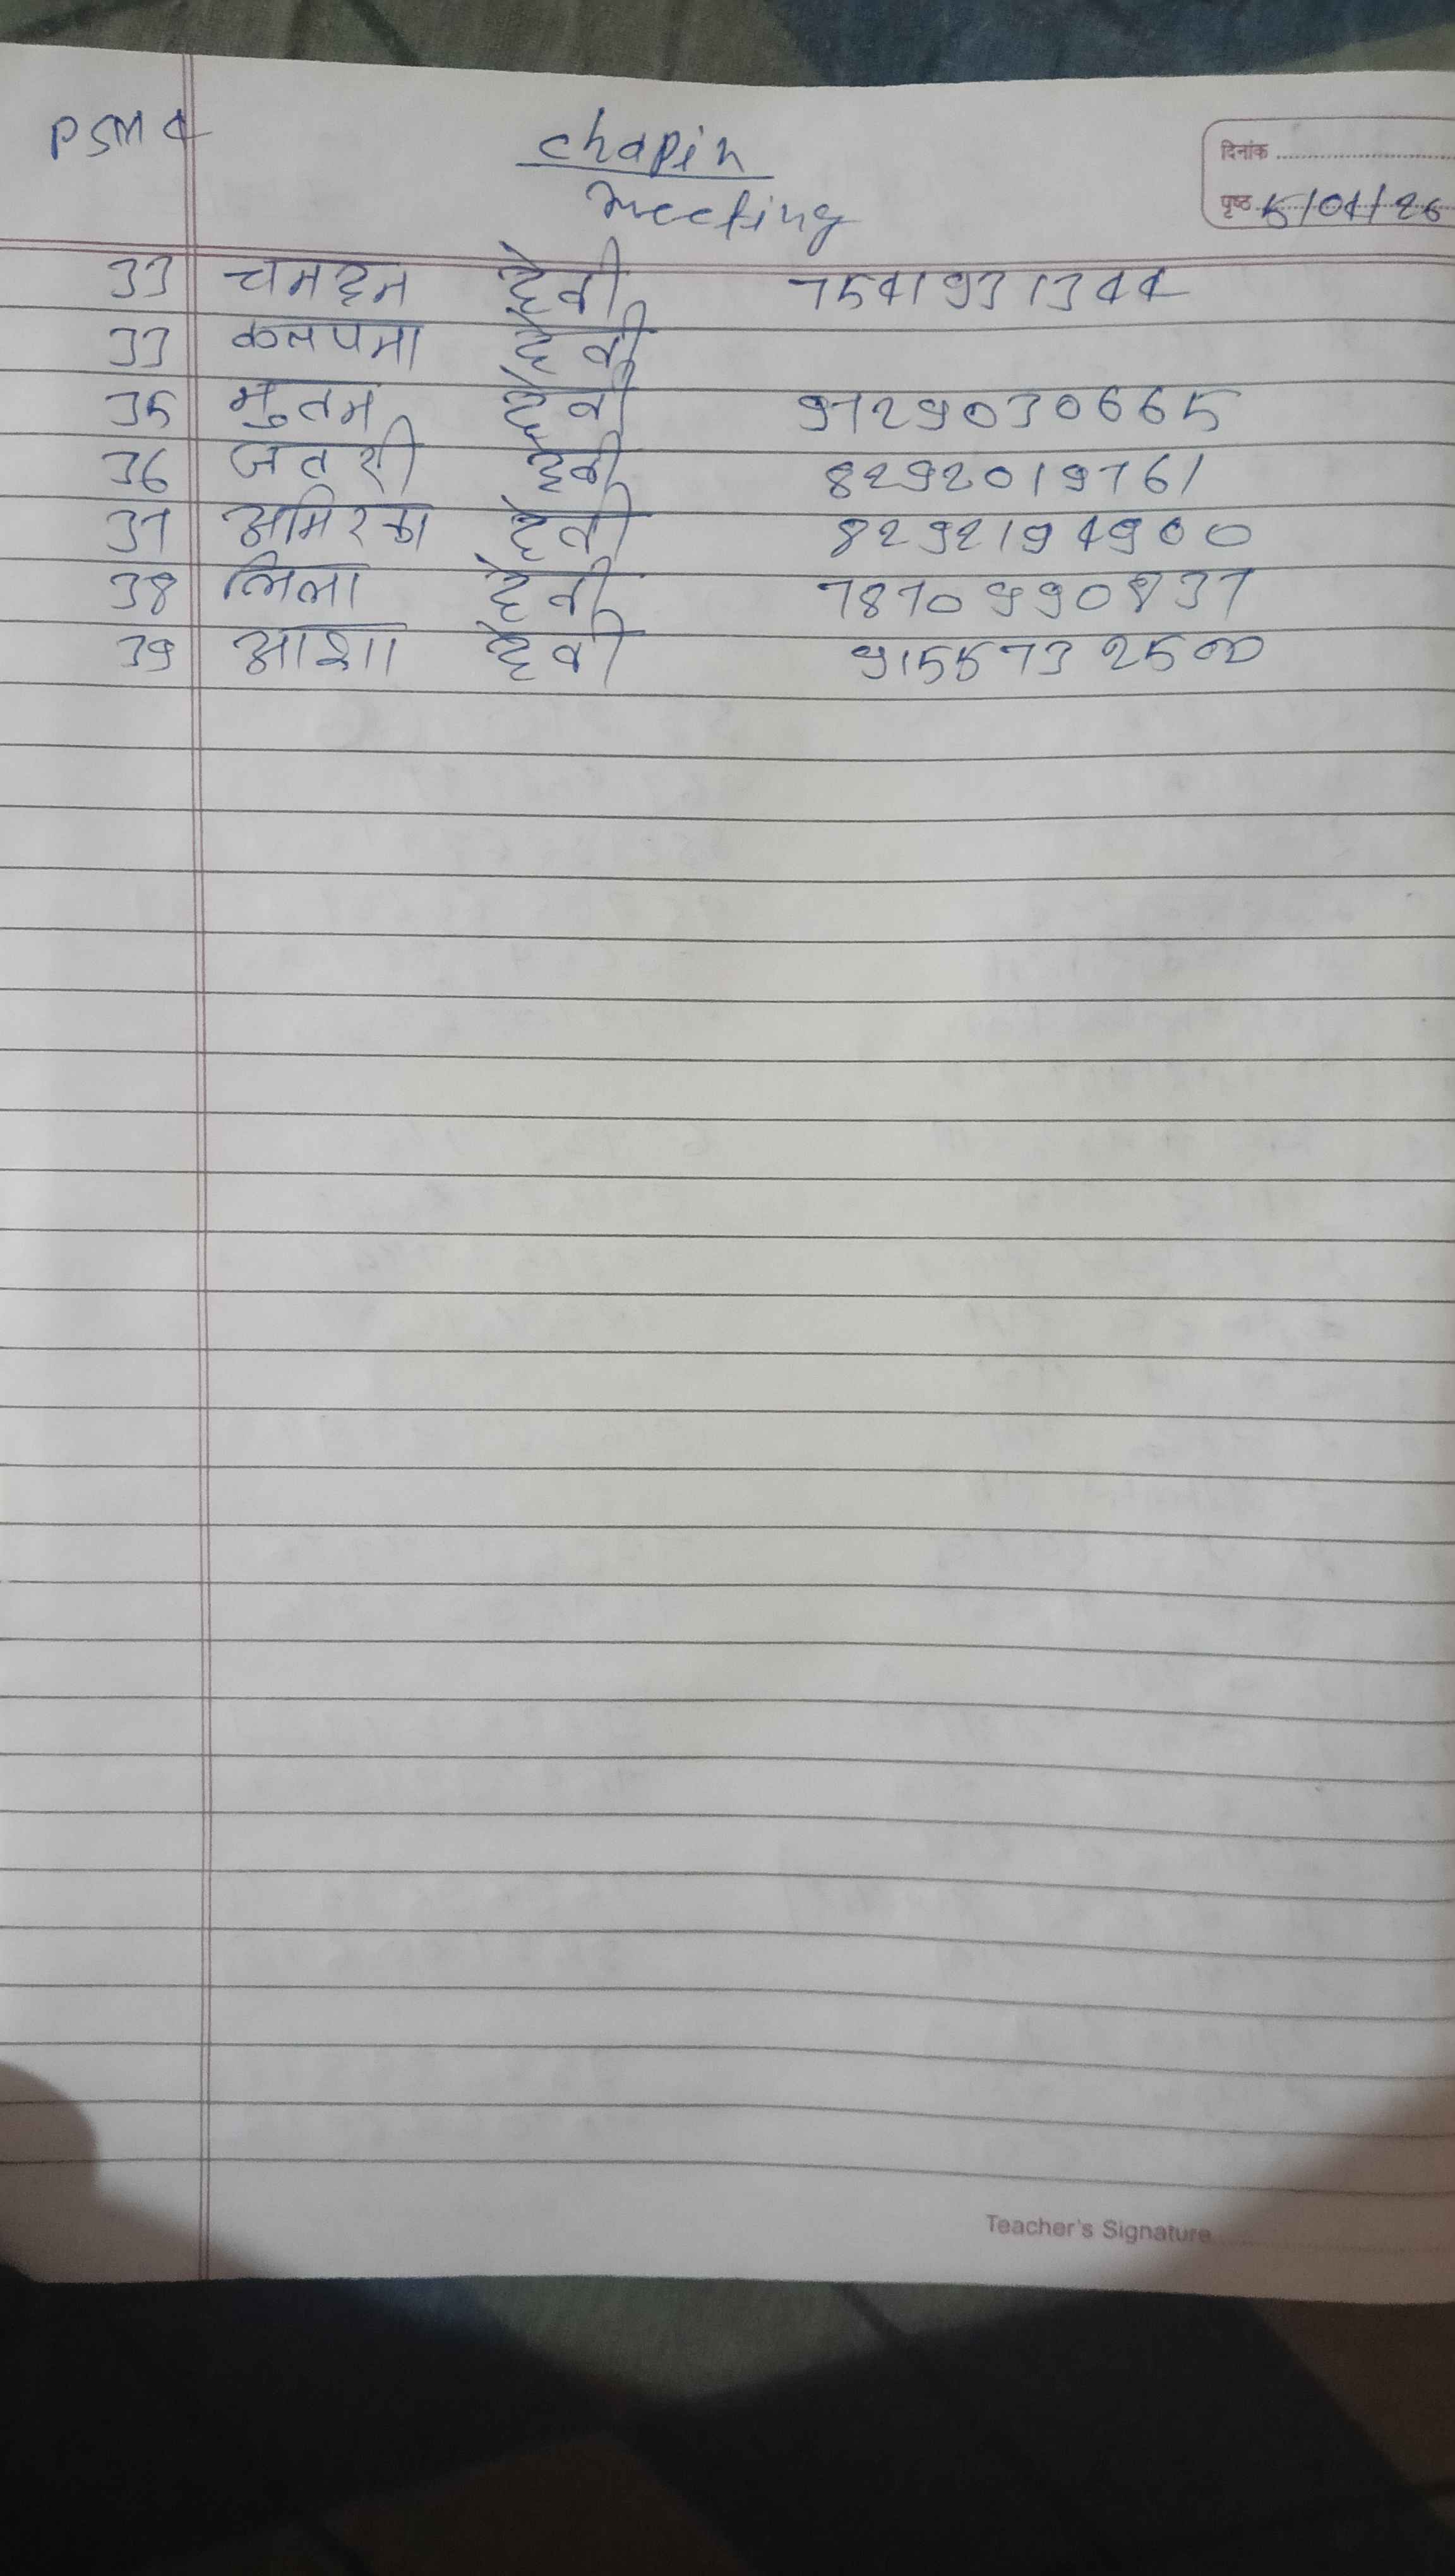 PSM 4
chapin
meeting
दिनांक
पृष्ठ 5/01/26
33 चमदम देवी 7541931344
33 कलपना देवी
35 भुतम देवी 9729030665
36 जतरी देवी 8292019761
37 अमिरका देवी 8292194900
38 लिला देवी 7870990837
39 आशा देवी 9155732500
Teacher's Signature